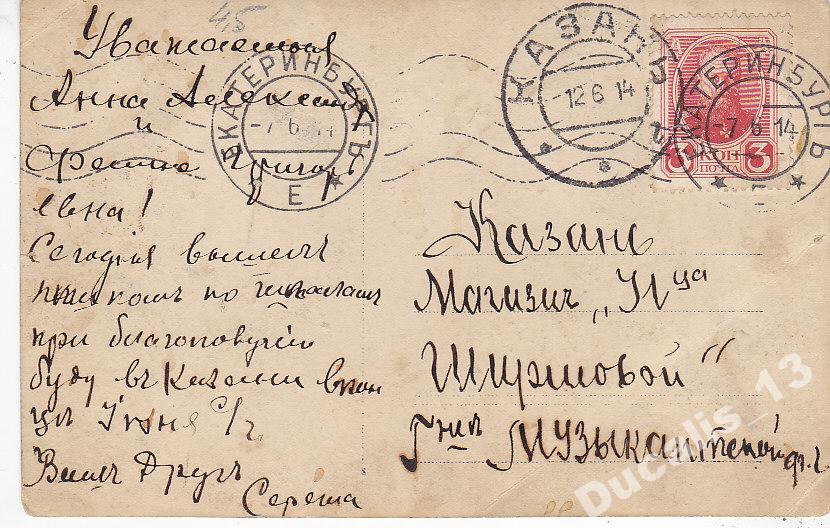 45
Уважаемая
Анна Алексеевна
и
Григор
евна!
Сегодня выѣхалъ
пѣшкомъ по шпаламъ
при благополучіи
буду въ Казани въ кон
цѣ Іюня с/г.
Вашъ Другъ
Сережа
ЕКАТЕРИНБУРГЪ
-7 6 14
Е
КАЗАНЬ
12 6 14
ЕКАТЕРИНБУРГЪ
-7 6 14
3 КОП 3
ПОЧТА
Казань
Магазинъ „
Ширшовой"
Г-нѣ Музыкантской
Ducalis_13